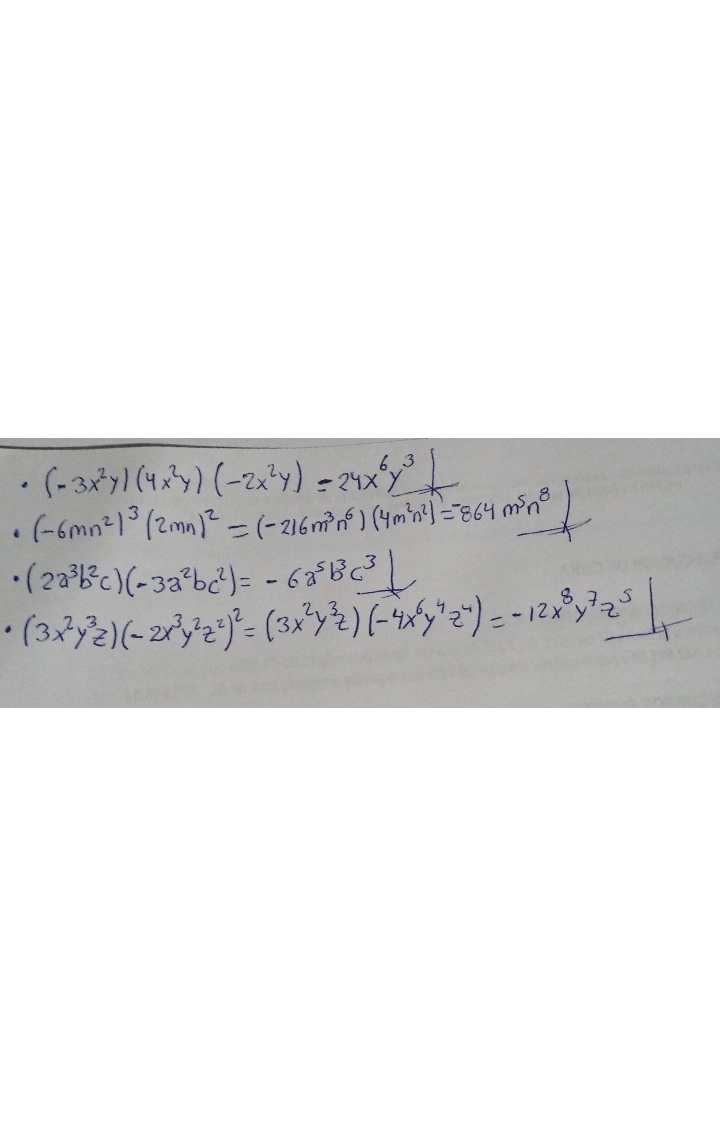 • (-3x²y)(4x²y)(-2x²y) = 24x⁶y³
• (-6mn²)³(2mn)² = (-216m³n⁶)(4m²n²) = -864m⁵n⁸
• (2a³b²c)(-3a²bc²) = -6a⁵b³c³
• (3x²y³z)(-2x³y²z²)² = (3x²y³z)(-4x⁶y⁴z⁴) = -12x⁸y⁷z⁵